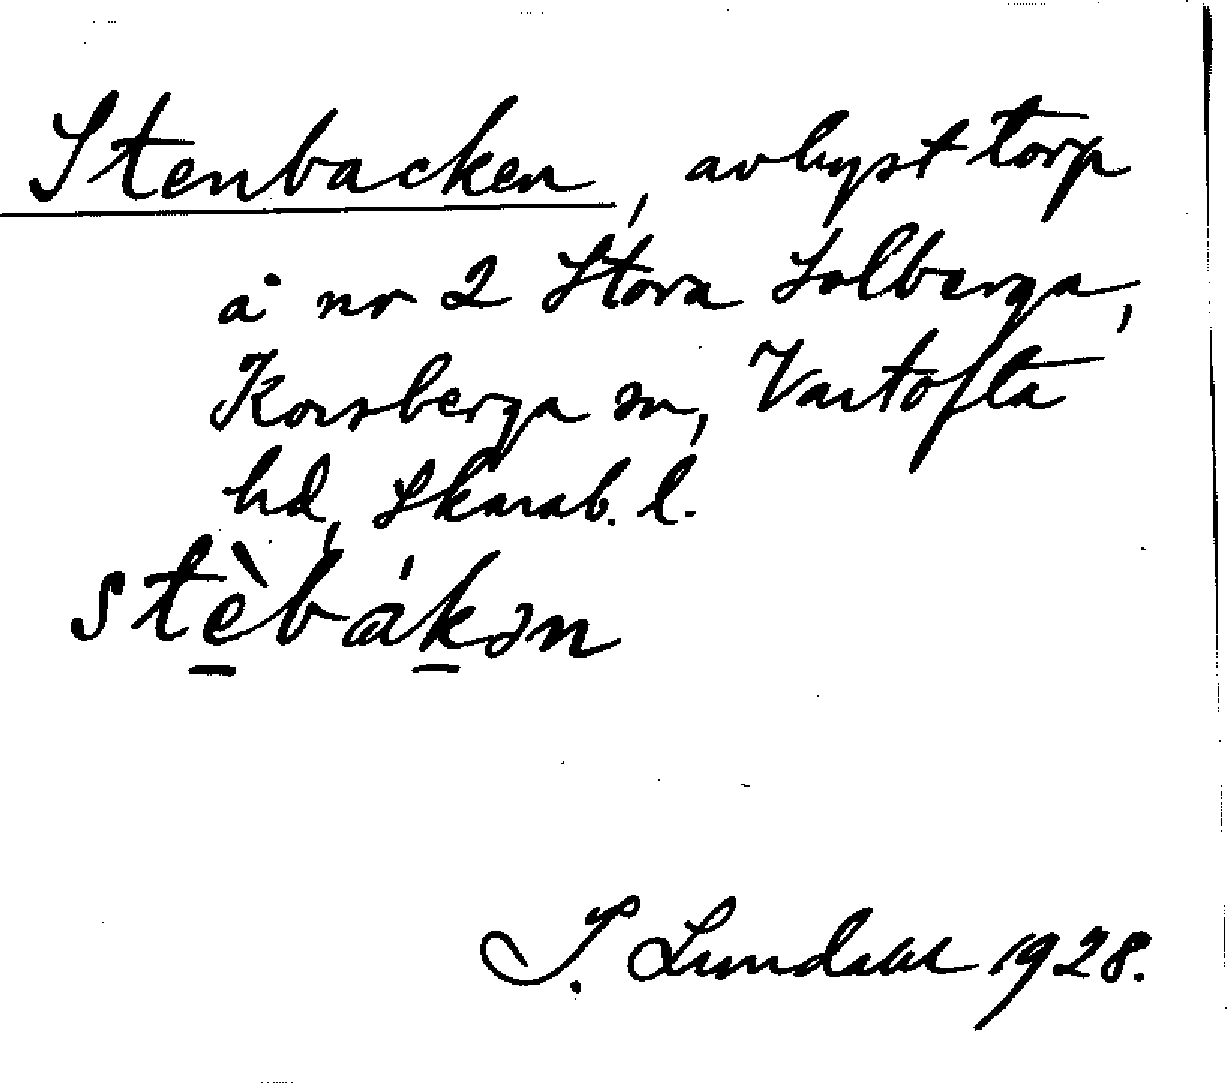 Stenbacken, avhyst torp
å nr 2 Stora Solberga,
Korsberga sn, Vartofta
hd, Skarab. l.
stè̠bák̠ən
J. Lundahl 1928.